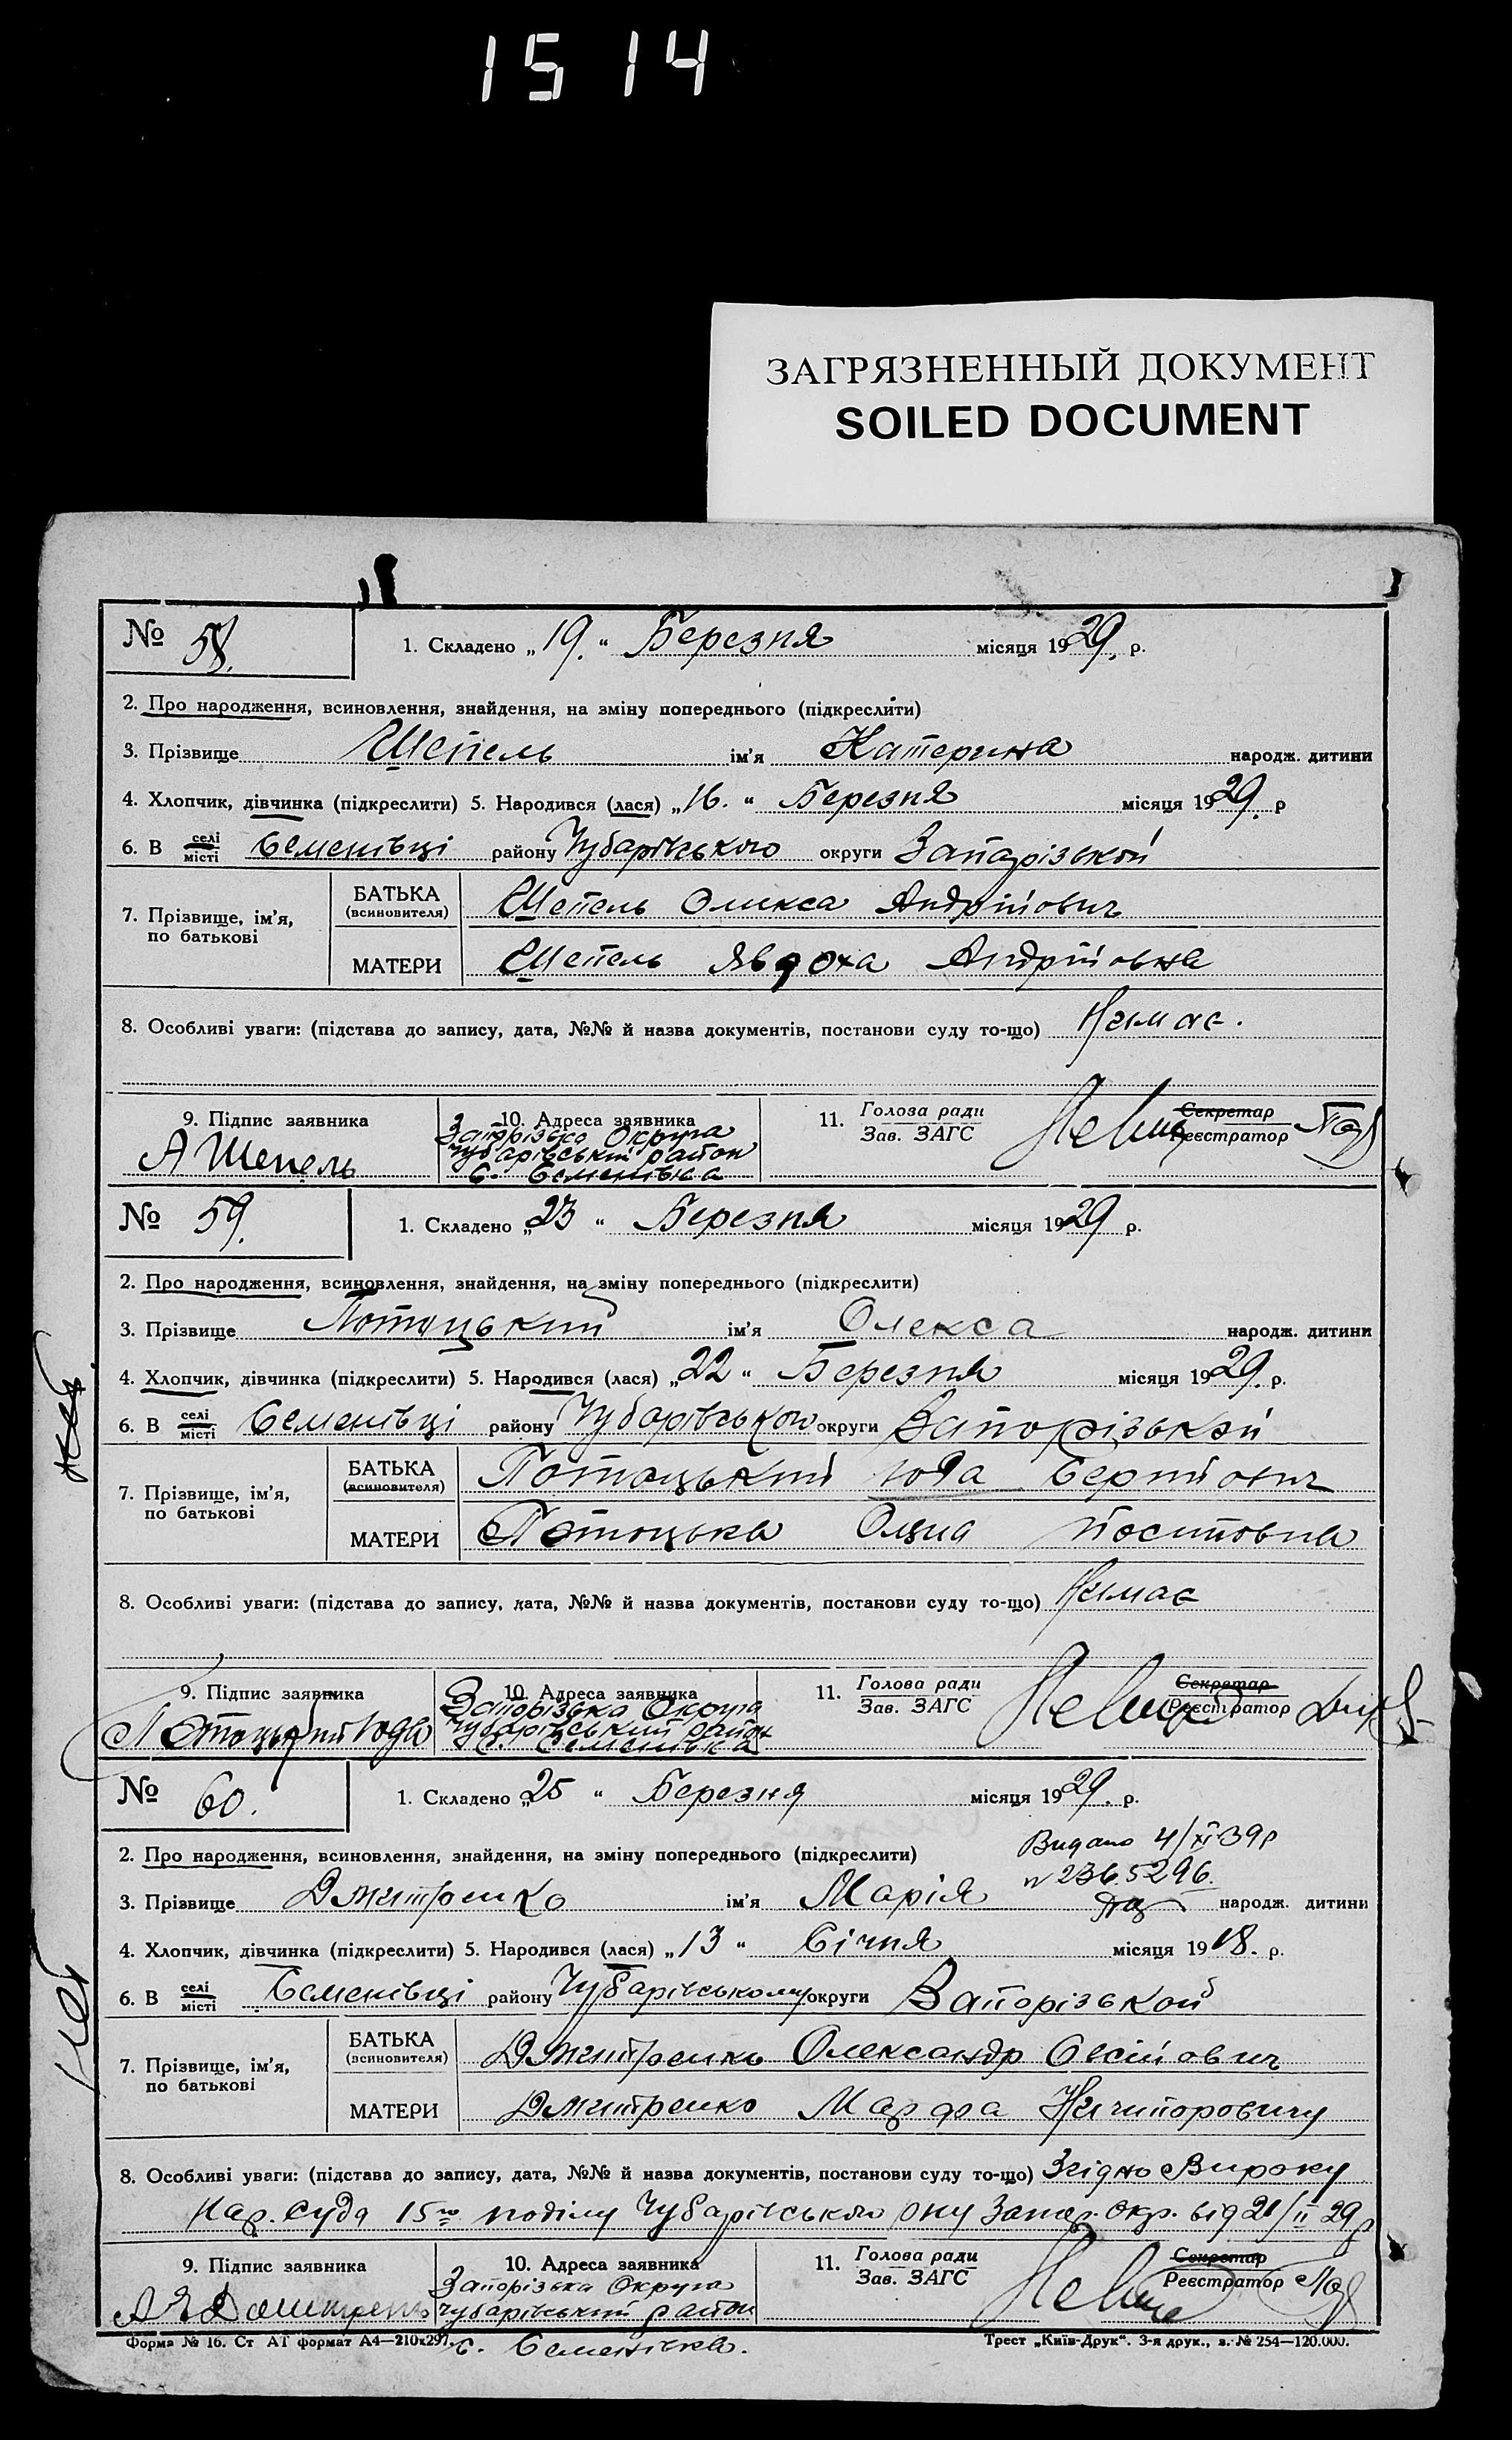 1514
ЗАГРЯЗНЕННЫЙ ДОКУМЕНТ
SOILED DOCUMENT
№ 58. 1. Складено „19.“ Березня місяця 1929. р.
2. Про народження, всиновлення, знайдення, на зміну попереднього (підкреслити)
3. Прізвище Шепель ім'я Катерина народж. дитини
4. Хлопчик, дівчинка (підкреслити) 5. Народився (лася) „16.“ Березня місяця 1929. р
6. В селі місті Семенівці району Чубарівського округи Запорізької
7. Прізвище, ім'я, по батькові
БАТЬКА (всиновителя) Шепель Оликса Андрійович
МАТЕРИ Шепель Явдоха Андрійовна
8. Особливі уваги: (підстава до запису, дата, №№ й назва документів, постанови суду то-що) Немає.
9. Підпис заявника 10. Адреса заявника 11. Голова ради Зав. ЗАГС Секретар Реєстратор
А Шепель
Запорізька Округа
Чубарівський район
с. Семенівка
№ 59. 1. Складено „23“ Березня місяця 1929 р.
2. Про народження, всиновлення, знайдення, на зміну попереднього (підкреслити)
3. Прізвище Потоцький ім'я Олекса народж. дитини
4. Хлопчик, дівчинка (підкреслити) 5. Народився (лася) „22“ Березня місяця 1929. р.
6. В селі місті Семенівці району Чубарівського округи Запорізькой
7. Прізвище, ім'я, по батькові
БАТЬКА (всиновителя) Потоцький Юда
МАТЕРИ Потоцька
8. Особливі уваги: (підстава до запису, дата, №№ й назва документів, постанови суду то-що) Немає
9. Підпис заявника 10. Адреса заявника 11. Голова ради Зав. ЗАГС Секретар Реєстратор
Потоцький Юда
Запорізька Округа
Чубарівський район
с. Семенівка
№ 60. 1. Складено „25“ Березня місяця 1929. р.
Видано 4/XI 39р
2. Про народження, всиновлення, знайдення, на зміну попереднього (підкреслити)
№ 2365296.
3. Прізвище Дмитренко ім'я Марія народж. дитини
4. Хлопчик, дівчинка (підкреслити) 5. Народився (лася) „13“ Січня місяця 1918. р.
6. В селі місті Семенівці району Чубарівському округи Запорізькой
7. Прізвище, ім'я, по батькові
БАТЬКА (всиновителя) Дмитренко Олександр Овсійович
МАТЕРИ Дмитренко Марфа
8. Особливі уваги: (підстава до запису, дата, №№ й назва документів, постанови суду то-що) Згідно Вироку
Нар. Суда 15го поділу Чубарівського р-ну Запор. Окр. від 21/II 29р
9. Підпис заявника 10. Адреса заявника 11. Голова ради Зав. ЗАГС Секретар Реєстратор
Запорізька Округа
Чубарівський район
с. Семенівка.
Форма № 16. Ст АТ формат А4—210х297. Трест „Київ-Друк“. 3-я друк., з. № 254—120.000.